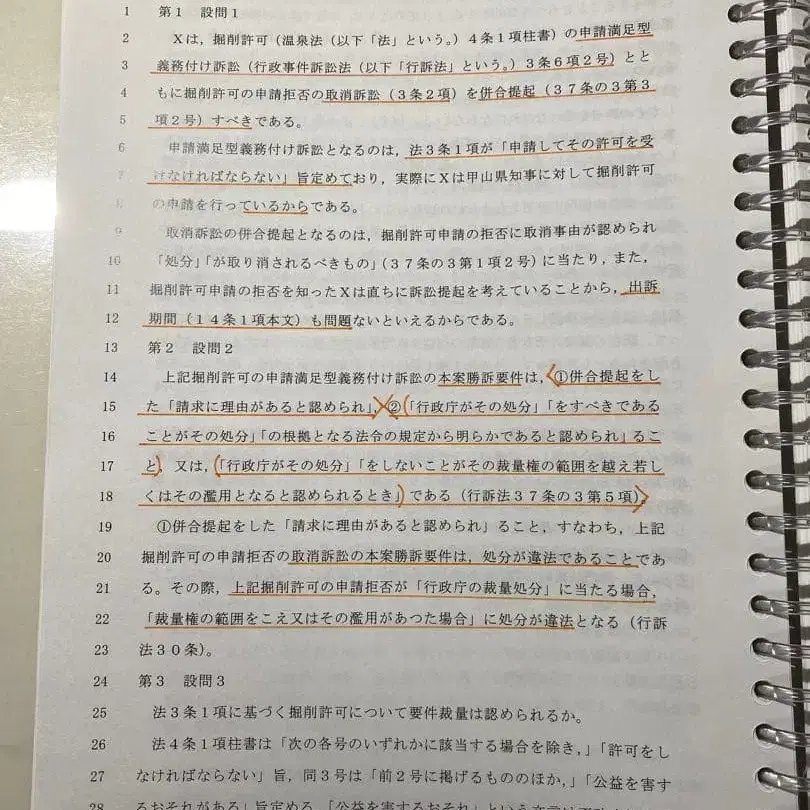 1 第1 設問1
2 Xは，掘削許可（温泉法（以下「法」という。）4条1項柱書）の申請満足型
3 義務付け訴訟（行政事件訴訟法（以下「行訴法」という。）3条6項2号）とと
4 もに掘削許可の申請拒否の取消訴訟（3条2項）を併合提起（37条の3第3
5 項2号）すべきである。
6 申請満足型義務付け訴訟となるのは，法3条1項が「申請してその許可を受
7 けなければならない」旨定めており，実際にXは甲山県知事に対して掘削許可
8 の申請を行っているからである。
9 取消訴訟の併合提起となるのは，掘削許可申請の拒否に取消事由が認められ
10 「処分」「が取り消されるべきもの」（37条の3第1項2号）に当たり，また，
11 掘削許可申請の拒否を知ったXは直ちに訴訟提起を考えていることから，出訴
12 期間（14条1項本文）も問題ないといえるからである。
13 第2 設問2
14 上記掘削許可の申請満足型義務付け訴訟の本案勝訴要件は，①併合提起をし
15 た「請求に理由があると認められ」，②「行政庁がその処分」「をすべきである
16 ことがその処分」「の根拠となる法令の規定から明らかであると認められ」るこ
17 と，又は，「行政庁がその処分」「をしないことがその裁量権の範囲を越え若し
18 くはその濫用となると認められるとき」である（行訴法37条の3第5項）。
19 ①併合提起をした「請求に理由があると認められ」ること，すなわち，上記
20 掘削許可の申請拒否の取消訴訟の本案勝訴要件は，処分が違法であることであ
21 る。その際，上記掘削許可の申請拒否が「行政庁の裁量処分」に当たる場合，
22 「裁量権の範囲をこえ又はその濫用があつた場合」に処分が違法となる（行訴
23 法30条）。
24 第3 設問3
25 法3条1項に基づく掘削許可について要件裁量は認められるか。
26 法4条1項柱書は「次の各号のいずれかに該当する場合を除き，」「許可をし
27 なければならない」旨，同3号は「前2号に掲げるもののほか，」「公益を害す
28 るおそれがある」旨定める。「公益を害するおそれ」という文言は